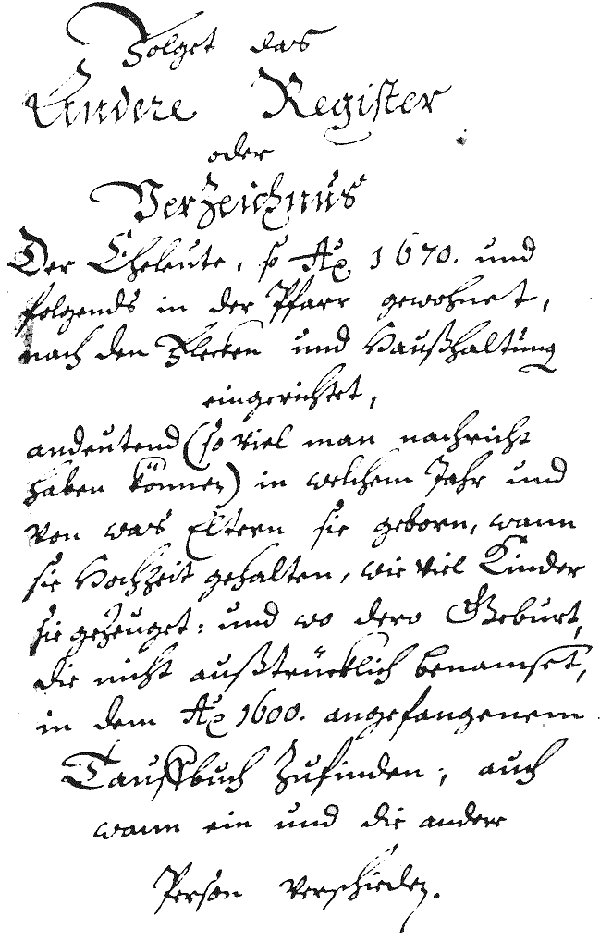 Folget das
Andere Register
oder
Verzeichnus
Der Eheleute, so Ao 1670. und
folgends in der Pfarr gewohnet,
nach den Flecken und Haußhaltung
eingerichtet,
andeutend (so viel man nachricht
haben können) in welchem Jahr und
von was Eltern sie geborn, wann
sie Hochzeit gehalten, wie viel Kinder
sie gezeuget: und wo dero Geburt,
die nicht außtrücklich benamset,
in dem Ao 1600. angefangenem
Tauffbuch zufinden; auch
wann ein und die andere
Person verschieden.